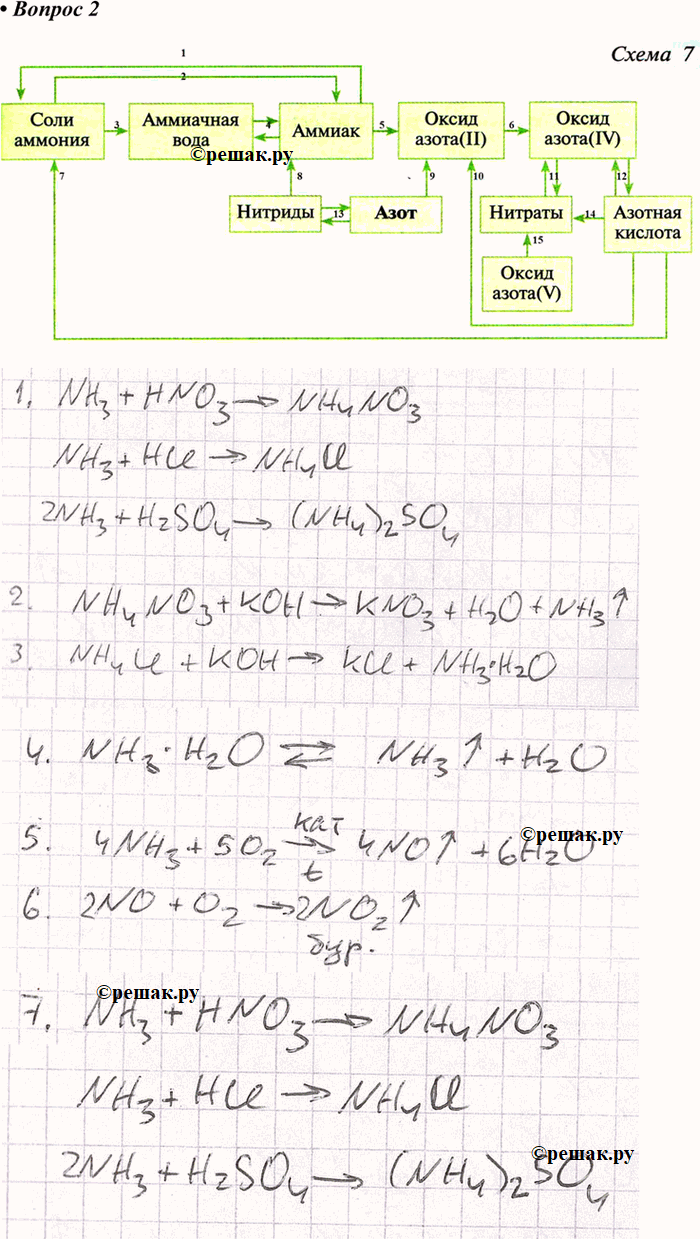 • Вопрос 2
Схема 7
1
2
Соли аммония
3
Аммиачная вода
4
Аммиак
5
Оксид азота(II)
6
Оксид азота(IV)
©решак.ру
7
8
9
10
11
12
Нитриды
13
Азот
Нитраты
14
Азотная кислота
15
Оксид азота(V)
1. NH₃ + HNO₃ → NH₄NO₃
NH₃ + HCl → NH₄Cl
2NH₃ + H₂SO₄ → (NH₄)₂SO₄
2. NH₄NO₃ + KOH → KNO₃ + H₂O + NH₃↑
3. NH₄Cl + KOH → KCl + NH₃·H₂O
4. NH₃·H₂O ⇄ NH₃↑ + H₂O
©решак.ру
кат
5. 4NH₃ + 5O₂ → 4NO↑ + 6H₂O
t
6. 2NO + O₂ → 2NO₂↑
бур.
©решак.ру
7. NH₃ + HNO₃ → NH₄NO₃
NH₃ + HCl → NH₄Cl
©решак.ру
2NH₃ + H₂SO₄ → (NH₄)₂SO₄